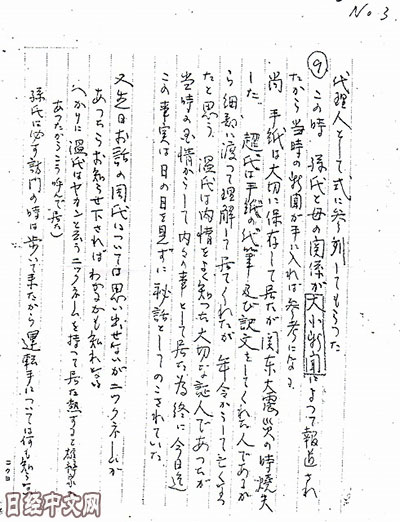 No 3
代理人として式に参列してもらった
⑨ この時 孫氏と母の関係が大小新聞によって報道され
たから当時の新聞が手に入れば参考になる
尚 手紙は大切に保存して居たが関东大震災の時焼失
した 温氏は手紙の代筆及び訳文をしてくれた人であるか
ら細部に渡って理解して居てくれたが 年令からって亡くなっ
たと思う 温氏は内情をよく知った大切な証人であったが
当時の事情からして内々の事として居た為 終に今日迄
この事実は日の目を見ずに秘話としてのこされていた
又先日お話の 周氏については思い出せないがニックネームが
あったらお知らせ下さればわかるかも知れない
温氏はヤカンと云うニックネームを持って居た 熱すると
あったからこう呼んで居た)
孫氏は必ず訪門の時は歩いて来たから運転手については何も知らない
日经中文网